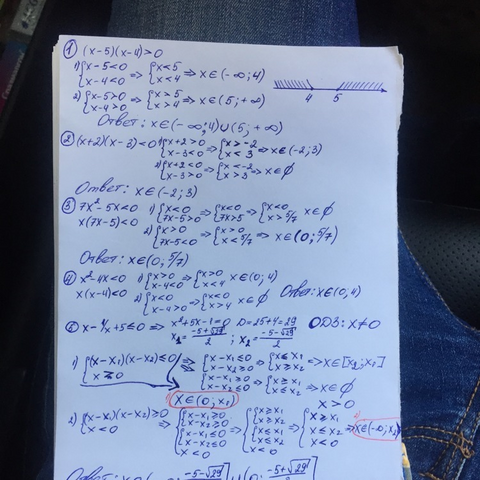 ① (x-5)(x-4)>0
1) {x-5<0 x-4<0 ⇒ {x<5 x<4 ⇒ x∈(-∞;4)
2) {x-5>0 x-4>0 ⇒ {x>5 x>4 ⇒ x∈(5;+∞)
4 5
Ответ: x∈(-∞;4)∪(5;+∞)
② (x+2)(x-3)<0 1) {x+2>0 x-3<0 ⇒ {x>-2 x<3 ⇒ x∈(-2;3)
2) {x+2<0 x-3>0 ⇒ {x<-2 x>3 ⇒ x∈∅
Ответ: x∈(-2;3)
③ 7x²-5x<0 1) {x<0 7x-5>0 ⇒ {x<0 7x>5 ⇒ {x<0 x>5/7 x∈∅
x(7x-5)<0 2) {x>0 7x-5<0 ⇒ {x>0 x<5/7 ⇒ x∈(0;5/7)
Ответ: x∈(0;5/7)
④ x²-4x<0 1) {x>0 x-4<0 ⇒ {x>0 x<4 x∈(0;4)
x(x-4)<0 2) {x<0 x-4>0 ⇒ {x<0 x>4 x∈∅ Ответ: x∈(0,4)
x-1/x+5≤0 ⇒ x²+5x-1=0 D=25+4=29 ОДЗ: x≠0
x₁=(-5+√29)/2 ; x₂=(-5-√29)/2
1) {(x-x₁)(x-x₂)≤0 x≥0 ⇒ {x-x₁≤0 x-x₂≥0 ⇒ {x≤x₁ x≥x₂ ⇒ x∈[x₂;x₁]
{x-x₁≥0 x-x₂≤0 ⇒ {x≥x₁ x≤x₂ ⇒ x∈∅
x∈(0;x₁] x>0
2) {(x-x₁)(x-x₂)≥0 x<0 ⇒ {x-x₁≥0 x-x₂≥0 x-x₁≤0 x-x₂≤0 x<0 ⇒ {x≥x₁ x≥x₂ x≤x₁ x≤x₂ x<0 ⇒ {x≥x₁ x≤x₂ x<0 ⇒ x∈(-∞;x₂]